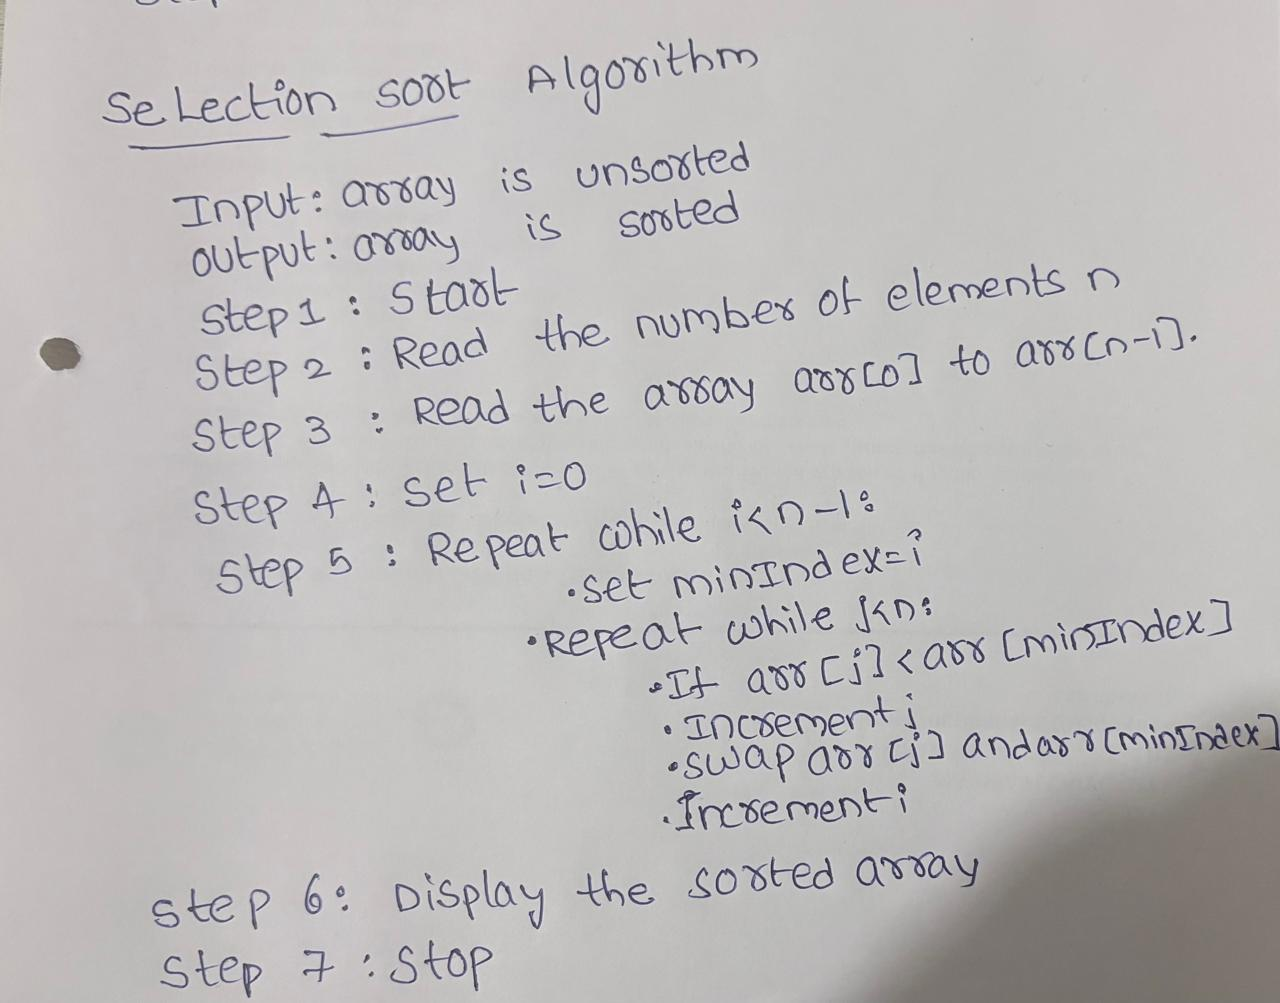 Selection sort Algorithm
Input: array is unsorted
output: array is sorted
Step 1 : Start
Step 2 : Read the number of elements n
Step 3 : Read the array arr[0] to arr[n-1].
Step 4 : Set i=0
Step 5 : Repeat while i<n-1:
•Set minIndex=i
•Repeat while j<n:
•If arr[j]<arr[minIndex]
•Increment j
•swap arr[j] and arr[minIndex]
•Increment i
Step 6: Display the sorted array
Step 7 : Stop